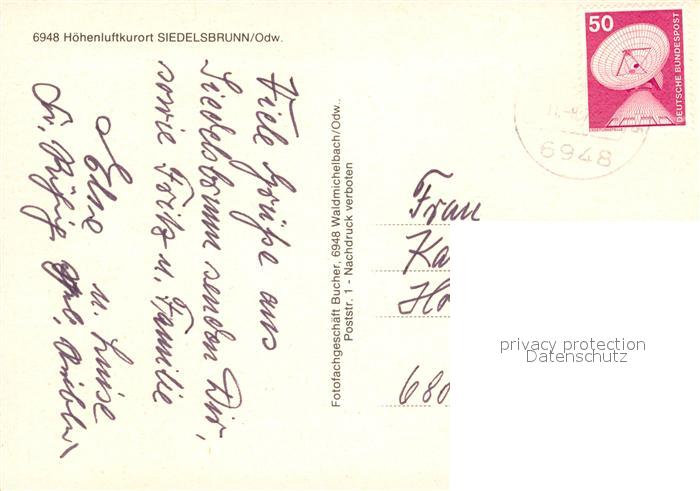 6948 Höhenluftkurort SIEDELSBRUNN/Odw.
Viele Grüße aus
Siedelsbrunn senden Dir,
sowie Fritz u. Familie
Else u. Luise
Fotofachgeschäft Bucher, 6948 Waldmichelbach/Odw..
Poststr. 1 - Nachdruck verboten
50
DEUTSCHE BUNDESPOST
ERDEFUNKSTELLE
6948
Frau
Ka
Ho
680
privacy protection
Datenschutz